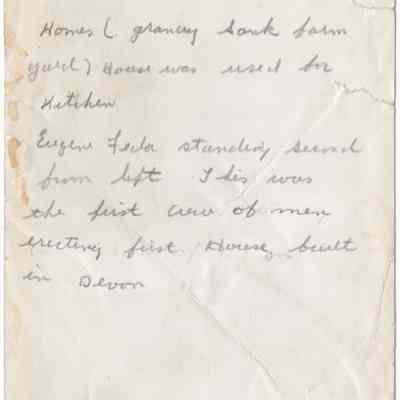 Homes ( granary Sank farm
yard ) House was used for
Kitchen
Eugene Feda standing second
from left This was
the first crew of men
erecting first House built
in Devon